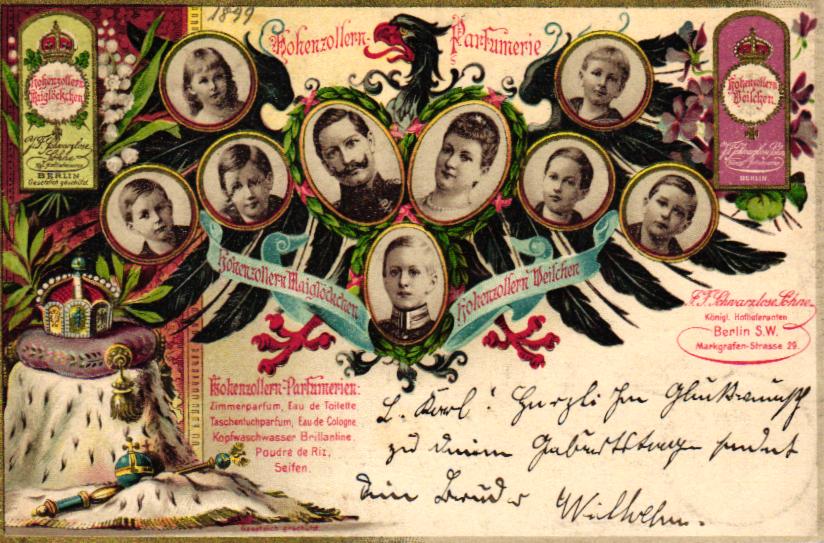 1899
Hohenzollern-Parfumerie
Hohenzollern
Maiglöckchen
J.F. Schwarzlose
Söhne
BERLIN
Gesetzlich geschützt
Hohenzollern
Veilchen
J.F. Schwarzlose
BERLIN
Hohenzollern Maiglöckchen
Hohenzollern Veilchen
J.F. Schwarzlose Söhne
Königl. Hoflieferanten
Berlin S.W.
Markgrafen-Strasse 29.
Hohenzollern-Parfumerien:
Zimmerparfum, Eau de Toilette
Taschentuchparfum, Eau de Cologne
Kopfwaschwasser Brillantine.
Poudre de Riz,
Seifen.
L. Karl! Herzlichen Glückwunsch
zu deinem Geburtstage sendet
dein Bruder Wilhelm.
Gesetzlich geschützt.